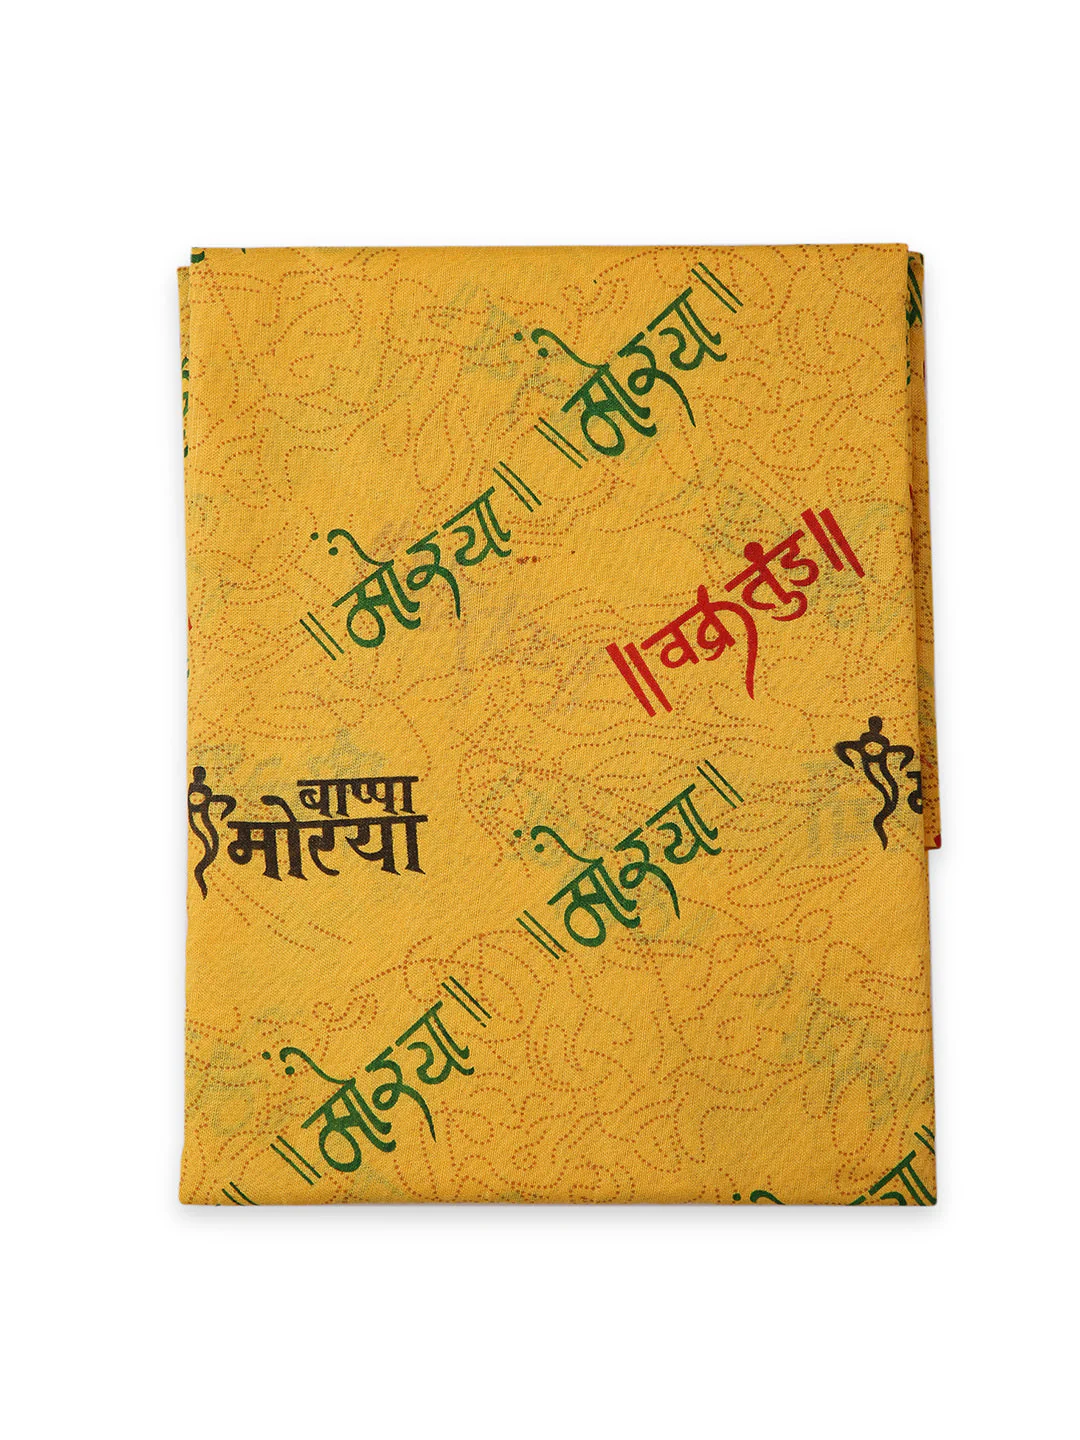 ॥ मोरया ॥
॥ मोरया ॥
॥ वक्रतुंड ॥
बाप्पा
मोरया
॥ मोरया ॥
॥ मोरया ॥